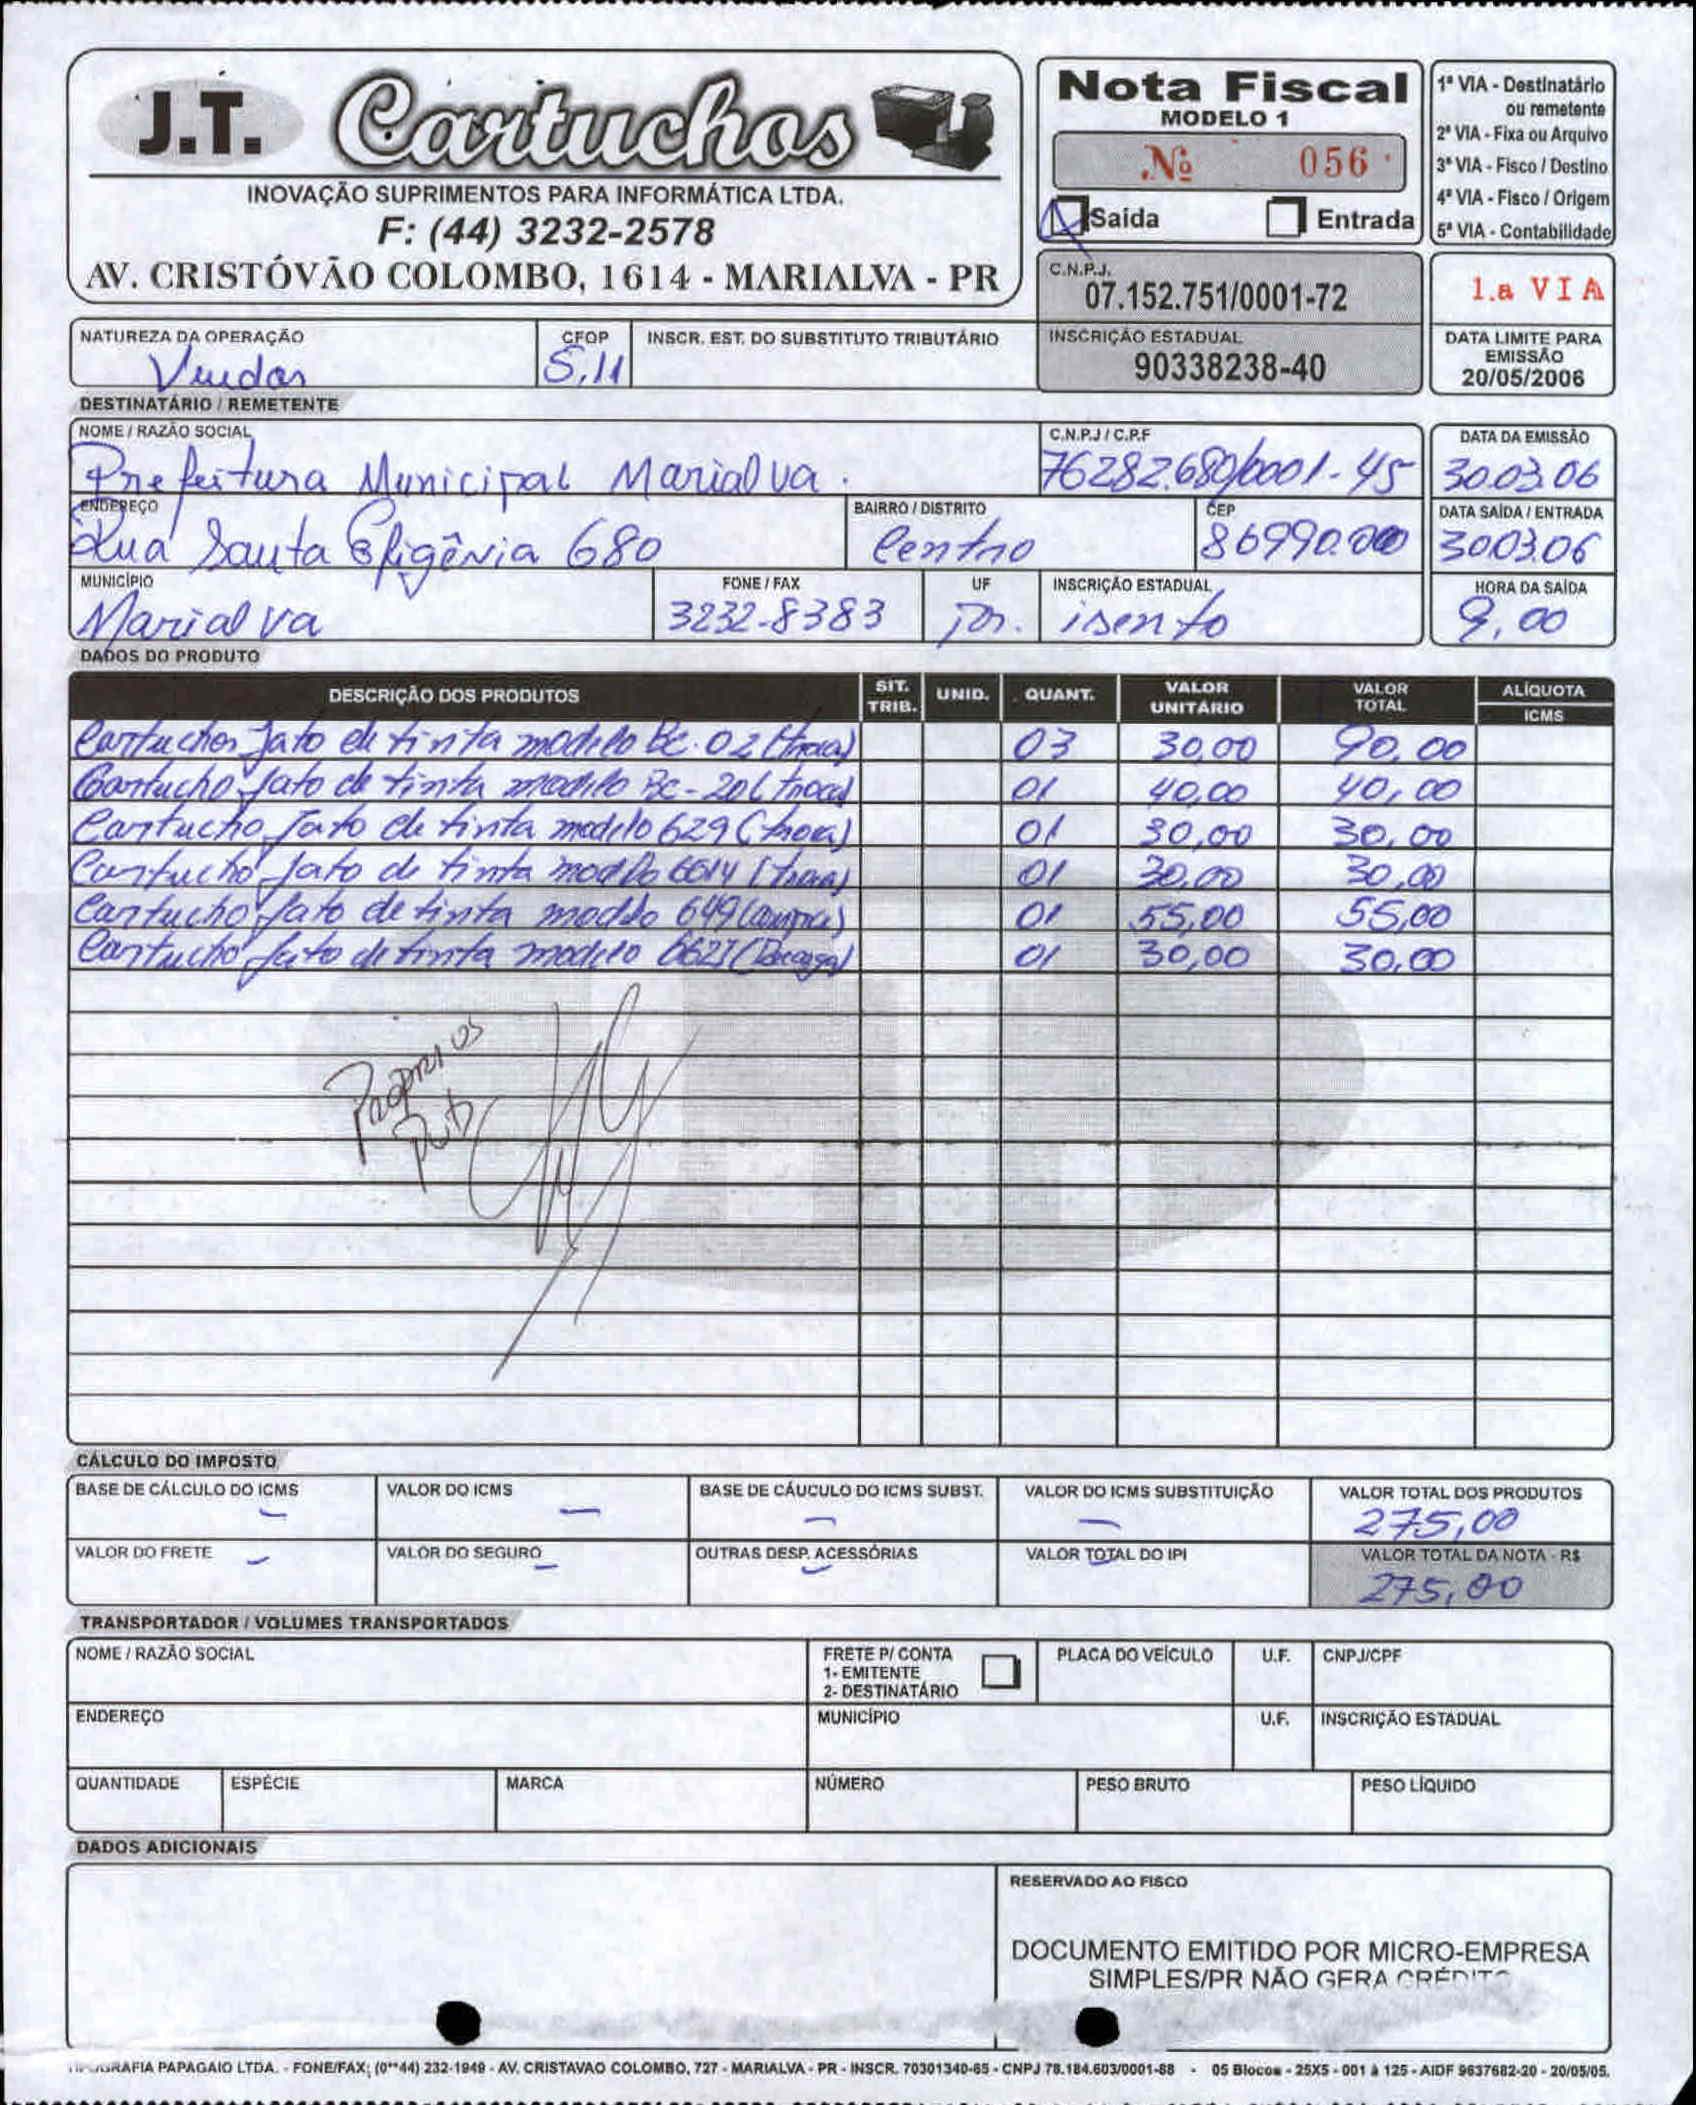 J.T. Cartuchos
INOVAÇÃO SUPRIMENTOS PARA INFORMÁTICA LTDA.
F: (44) 3232-2578
AV. CRISTÓVÃO COLOMBO, 1614 - MARIALVA - PR
Nota Fiscal
MODELO 1
Nº 056
Saída Entrada
1ª VIA - Destinatário
ou remetente
2ª VIA - Fixa ou Arquivo
3ª VIA - Fisco / Destino
4ª VIA - Fisco / Origem
5ª VIA - Contabilidade
C.N.P.J.
07.152.751/0001-72
1.a VIA
NATUREZA DA OPERAÇÃO
Vendas
CFOP
5.11
INSCR. EST. DO SUBSTITUTO TRIBUTÁRIO
INSCRIÇÃO ESTADUAL
90338238-40
DATA LIMITE PARA
EMISSÃO
20/05/2006
DESTINATÁRIO / REMETENTE
NOME / RAZÃO SOCIAL
Prefeitura Municipal Marialva.
C.N.P.J / C.P.F
76282.680/0001-45
DATA DA EMISSÃO
30.03.06
ENDEREÇO
Rua Santa Efigênia 680
BAIRRO / DISTRITO
Centro
CEP
86990.000
DATA SAÍDA / ENTRADA
30.03.06
MUNICÍPIO
Marialva
FONE / FAX
3232-8383
UF
Pr.
INSCRIÇÃO ESTADUAL
isento
HORA DA SAÍDA
9,00
DADOS DO PRODUTO
DESCRIÇÃO DOS PRODUTOS SIT. TRIB. UNID. QUANT. VALOR UNITÁRIO VALOR TOTAL ALÍQUOTA ICMS
Cartuchos Jato de tinta modelo Bc-02 (troca) 03 30,00 90,00
Cartucho Jato de tinta modelo Bc-20 (troca) 01 40,00 40,00
Cartucho Jato de tinta modelo 629 (troca) 01 30,00 30,00
Cartucho Jato de tinta modelo 6614 (troca) 01 30,00 30,00
Cartucho Jato de tinta modelo 649 (compra) 01 55,00 55,00
Cartucho Jato de tinta modelo (Recarga) 01 30,00 30,00
PROPRIOS
PUB
CÁLCULO DO IMPOSTO
BASE DE CÁLCULO DO ICMS
-
VALOR DO ICMS
-
BASE DE CÁUCULO DO ICMS SUBST.
-
VALOR DO ICMS SUBSTITUIÇÃO
-
VALOR TOTAL DOS PRODUTOS
275,00
VALOR DO FRETE
-
VALOR DO SEGURO
-
OUTRAS DESP. ACESSÓRIAS
-
VALOR TOTAL DO IPI
-
VALOR TOTAL DA NOTA - R$
275,00
TRANSPORTADOR / VOLUMES TRANSPORTADOS
NOME / RAZÃO SOCIAL
FRETE P/ CONTA
1- EMITENTE
2- DESTINATÁRIO
PLACA DO VEÍCULO
U.F.
CNPJ/CPF
ENDEREÇO
MUNICÍPIO
U.F.
INSCRIÇÃO ESTADUAL
QUANTIDADE
ESPÉCIE
MARCA
NÚMERO
PESO BRUTO
PESO LÍQUIDO
DADOS ADICIONAIS
RESERVADO AO FISCO
DOCUMENTO EMITIDO POR MICRO-EMPRESA
SIMPLES/PR NÃO GERA CRÉDITO
TIPOGRAFIA PAPAGAIO LTDA. - FONE/FAX; (0**44) 232-1949 - AV. CRISTAVAO COLOMBO, 727 - MARIALVA - PR - INSCR. 70301340-65 - CNPJ 78.184.603/0001-88 - 05 Blocos - 25X5 - 001 à 125 - AIDF 9637682-20 - 20/05/05.